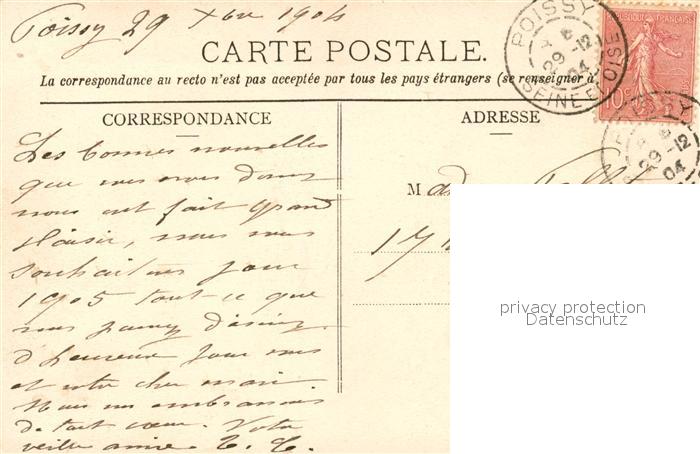 Poissy 29 Xbre 1904
CARTE POSTALE.
La correspondance au recto n'est pas acceptée par tous les pays étrangers (se renseigner à
POISSY
29 -12
04
SEINE ET OISE
REPUBLIQUE FRANÇAISE
10c
POISSY
29 -12
04
CORRESPONDANCE
ADRESSE
Les bonnes nouvelles
que vous nous donnez
nous ont fait grand
plaisir, nous vous
souhaitons pour
1905 tout ce que
vous pouvez désirer
d'heureux pour vous
et votre cher mari.
Nous vous embrassons
de tout cœur. Votre
vieille amie
Mad
17
privacy protection
Datenschutz